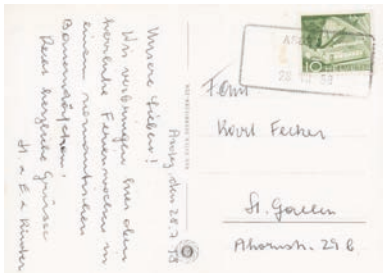 Unsere Lieben!
Wir verbringen hier oben
herrliche Ferienwochen in
einem romantischen
Bauerndörfchen.
Recht herzliche Grüsse
H. & E. & Kinder
den 28.7.53
Fam.
Karl Fecker
St. Gallen
Ahornstr. 29 b
10